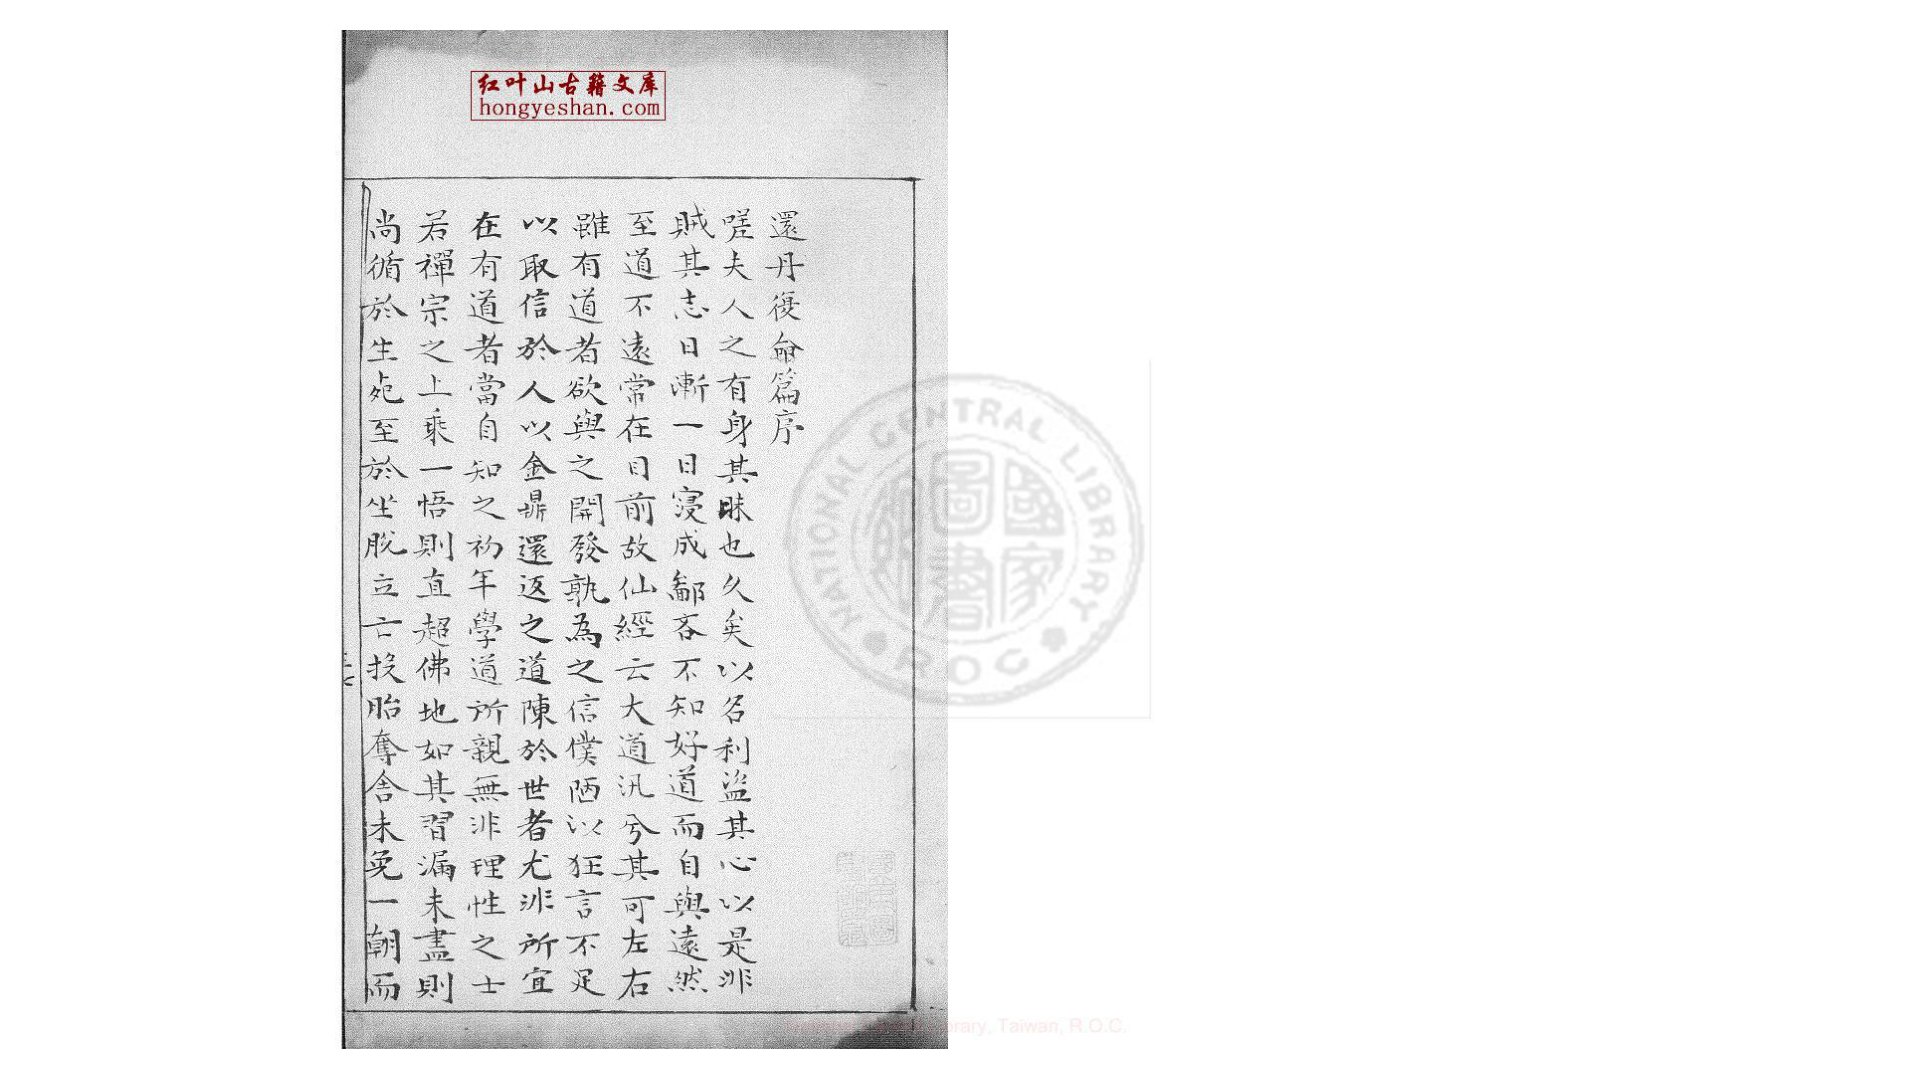 红叶山古籍文库
hongyeshan.com
還丹復命篇序
嗟夫人之有身其昧也久矣以名利盜其心以是非
賊其志日漸一日寖成鄙吝不知好道而自與遠然
至道不遠常在目前故仙經云大道汎兮其可左右
雖有道者欲與之開發孰為之信僕陋以狂言不足
以取信於人以金鼎還返之道陳於世者尤非所宜
在有道者當自知之初年學道所親無非理性之士
若禪宗之上乘一悟則直超佛地如其習漏未盡則
尚循於生死至於坐脫立亡投胎奪舍未免一朝而
NATIONAL CENTRAL LIBRARY
R.O.C.
國家圖書
rary, Taiwan, R.O.C.